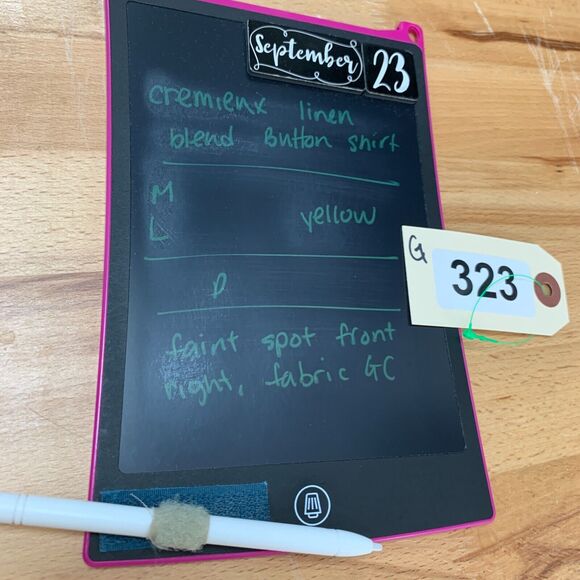 September 23
cremieux linen
blend Button shirt
M
yellow
L
D
faint spot front
right, fabric GC
G
323